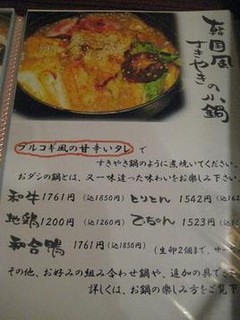 韓国風
すきやき小鍋
プルコギ風の甘辛いタレで
すきやき鍋のように煮焼いてください。
おダシの鍋とは、又一味違った味わいをお楽しみ下さい
和牛 1761円(込1850円) とりとん 1542円(込162
地鶏 1200円(込1260円) てっちゃん 1523円(込
和合鴨 1761円(込1850円) (生卵2個まで、サー
その他、お好みの組み合わせ鍋や、追加の具
詳しくは、お鍋の楽しみ方をご覧下